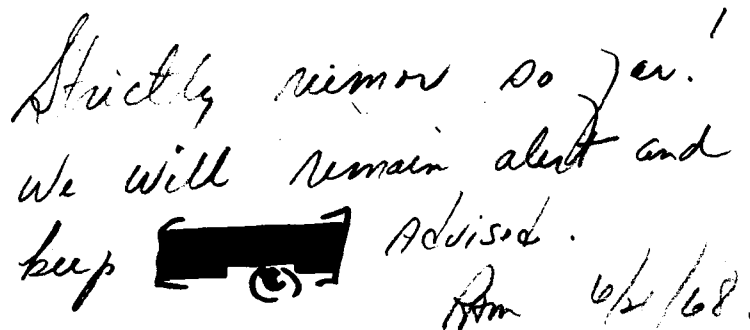 Strictly rumor so far!
We will remain alert and
keep advised.
6/21/68